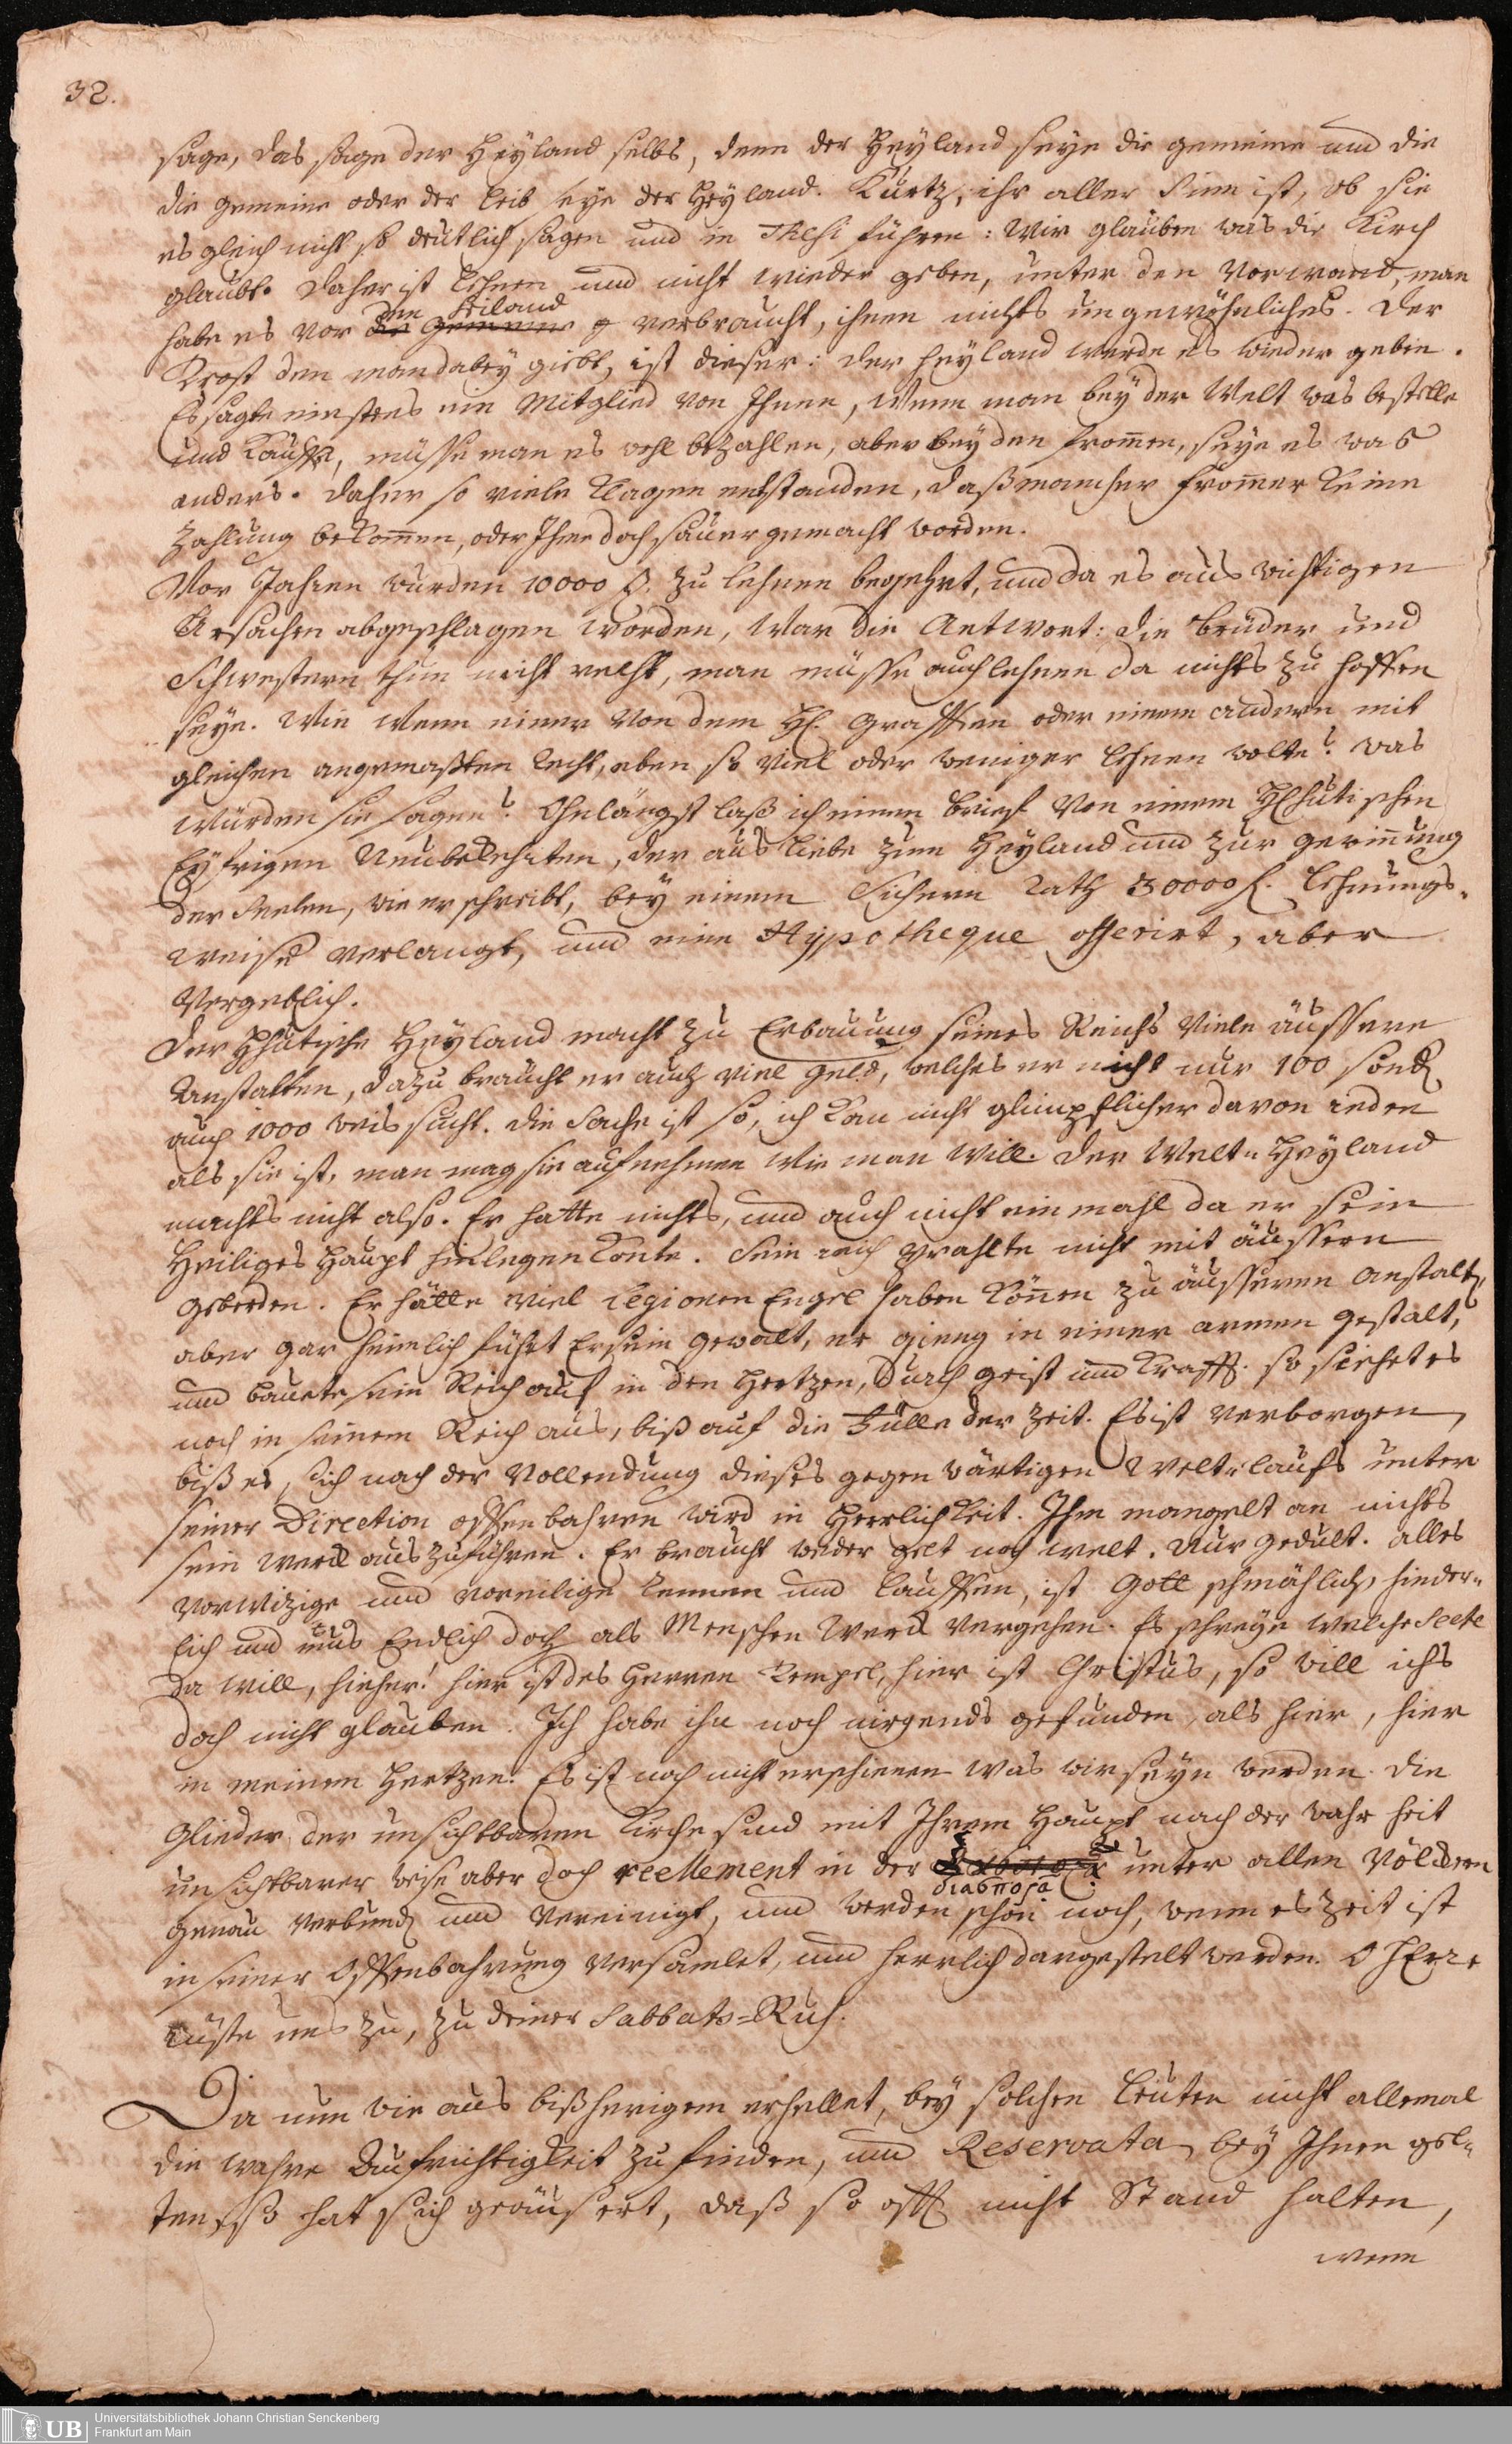 32.
sage, das sage der Heyland selbs, denn der Heyland seye die gemeine und die
die gemeine oder der leib seye der Heyland. Kurtz, ihr aller Sinn ist, ob sie
es gleich nicht so deutlich sagen und in Thesi führen: Wir glauben was die Kirch
glaubt. Daher ist lehnen und nicht wieder geben, unter den Vorwand, man
den Heiland
habe es vor die Gemeine verbraucht, ihnen nichts ungewöhnliches. Der
Trost den man dabey giebt, ist dieser: der Heyland werde es wieder geben.
Es sagte einstens ein Mitglied von Ihnen, Wenn man bey der Welt was bestelle
und kauffe, müsse man es wohl bezahlen, aber bey den frommen, seye es was
anders. Daher so viele klagen entstanden, daß mancher frommer keine
Zahlung bekommen, oder Ihme doch sauer gemacht worden.
Vor Jahren wurden 10000 f. zu lehnen begehrt, und da es aus wichtigen
Ursachen abgeschlagen worden, War die Antwort: die Brüder und
Schwestern thun nicht recht, man müsse auch lehnen da nichts zu hoffen
seye. Wie wenn einer von dem H. Graffen oder einem andern mit
gleichen angemaßten recht, eben so viel oder weniger lehnen wolte? was
würden sie sagen? Ohnlängst laß ich einen brief von einem Hhutischen
Eyfrigen Neubekehrten, der aus liebe zum Heyland und zur gewinnung
der Seelen, wie er schreibt, bey einem Sichern Rath 30000 f. Lehnungs-
weise verlangt, und eine Hypotheque offerirt, aber
Vergeblich.
Der Hhutische Heyland macht zu Erbauung seines Reichs Viele äussere
Anstalten, dazu braucht er auch viel geld, welches er nicht nur 100 sond.
auch 1000 weis sucht. die Sache ist so, ich kan nicht glimpflicher davon reden
als sie ist, man mag sie aufnehmen wie man will. Der Welt-Heyland
machts nicht also. Er hatte nichts, und auch nicht einmahl da er sein
Heiliges Haupt hinlegen konte. Sein reich prahlte nicht mit äussern
Geberden. Er hätte viel Legionen Engel haben können zu äusseren anstalt.
aber gar heimlich führt Er sein gewalt, er gieng in einer armen gestalt,
und bauete sein Reich auf in den Hertzen, durch geist und krafft. so siehet es
noch in seinem Reich aus, biß auf die Fülle der zeit. Es ist verborgen,
biß es, sich nach der Vollendung dieses gegenwärtigen Welt-laufs unter
seiner Direction offenbahren wird in Herrlichkeit. Ihm mangelt an nichts
sein werck auszuführen. Er braucht weder gelt noch welt. Nur gedult. alles
vorwizige und voreilige rennen und lauffen, ist Gott schmählich, hinder-
lich und mus Endlich doch als Menschen Werck vergehen. Es schreye welche Secte
da will, hieher! hier ist des Herren Tempel, hier ist Christus, so will ichs
doch nicht glauben. Ich habe ihn noch nirgends gefunden, als hier, hier
in meinen Hertzen. Es ist noch nicht erschienen was wir seyn werden. die
Glieder der unsichtbaren Kirche sind mit Ihrem Haupt nach der wahrheit
unsichtbarer weise aber doch reellement in der unter allen Völckern
διασπορᾶ
genau verbund. und vereinigt, und werden schon noch, wenn es zeit ist
in seiner Offenbahrung versamlet, und herrlich dargestelt werden. O HErr
rüste uns zu, zu deiner Sabbats-Ruh.
Da nun wie aus bißherigem erhellet, bey solchen leuten nicht allemal
die wahre Aufrichtigkeit zu finden, und Reservata bey Ihnen gel-
ten, so hat sich geäusert, daß so offt nicht Stand halten,
wenn
UB Universitätsbibliothek Johann Christian Senckenberg
Frankfurt am Main